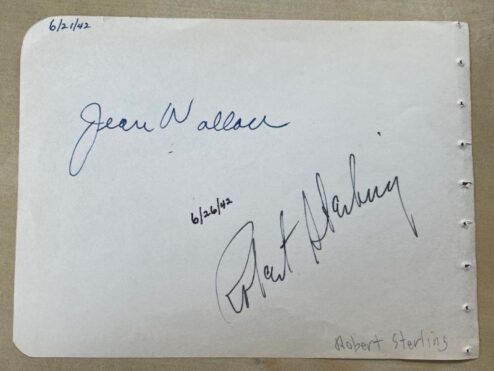 6/21/42
Jean Wallace
6/26/42
Robert Sterling
Robert Sterling